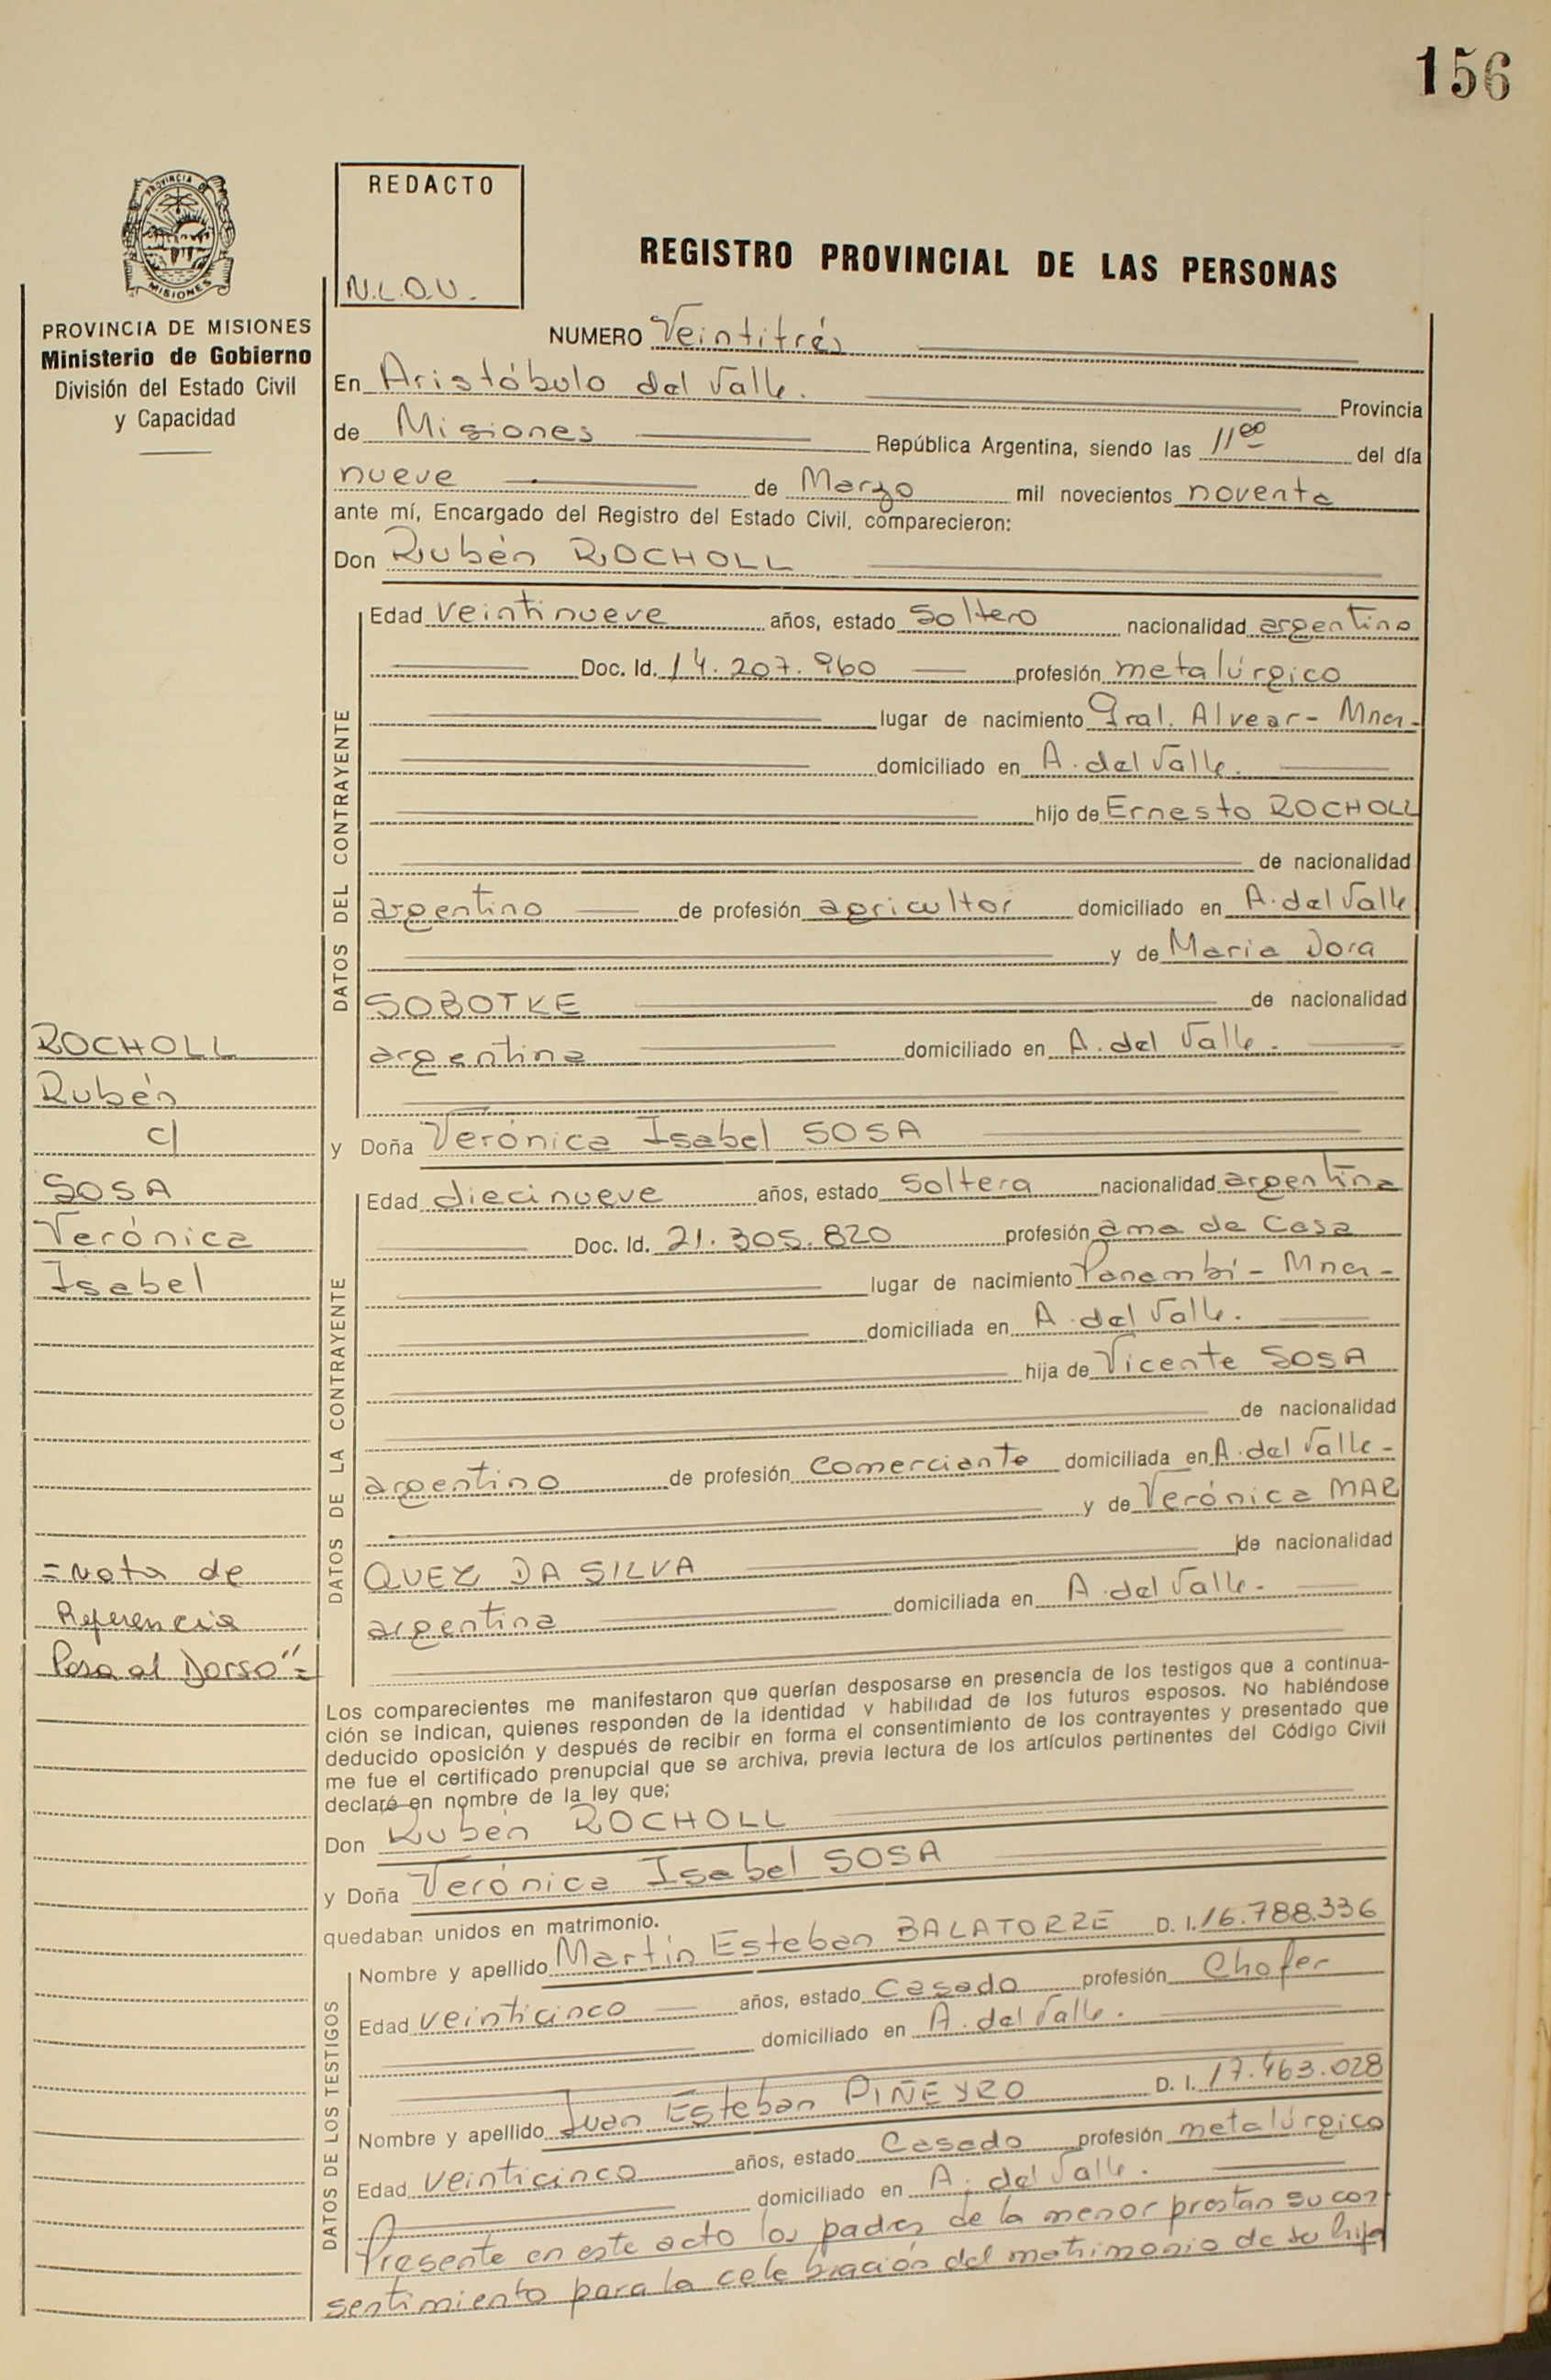 156
PROVINCIA DE
MISIONES
PROVINCIA DE MISIONES
Ministerio de Gobierno
División del Estado Civil
y Capacidad
REDACTO
N.L.O.U.
REGISTRO PROVINCIAL DE LAS PERSONAS
NUMERO Veintitrés
En Aristóbulo del Valle. Provincia
de Misiones República Argentina, siendo las 11 00 del día
nueve de Marzo mil novecientos noventa
ante mí, Encargado del Registro del Estado Civil, comparecieron:
Don Rubén ROCHOLL
DATOS DEL CONTRAYENTE
Edad veintinueve años, estado Soltero nacionalidad argentino
Doc. Id. 14.207.960 profesión metalúrgico
lugar de nacimiento Gral. Alvear - Mnes-
domiciliado en A. del Valle.
hijo de Ernesto ROCHOLL
de nacionalidad
argentino de profesión agricultor domiciliado en A. del Valle
y de Maria Dora
SOBOTKE de nacionalidad
argentina domiciliado en A. del Valle.
y Doña Verónica Isabel SOSA
DATOS DE LA CONTRAYENTE
Edad diecinueve años, estado Soltera nacionalidad argentina
Doc. Id. 21.305.820 profesión ama de Casa
lugar de nacimiento Panambí - Mnes-
domiciliada en A. del Valle.
hija de Vicente SOSA
de nacionalidad
argentino de profesión Comerciante domiciliada en A. del Valle-
y de Verónica MAR
QUEZ DA SILVA de nacionalidad
argentina domiciliada en A. del Valle.
ROCHOLL
Rubén
c/
SOSA
Verónica
Isabel
=Nota de
Referencia
Pasa al Dorso"=
Los comparecientes me manifestaron que querían desposarse en presencia de los testigos que a continua-
ción se indican, quienes responden de la identidad y habilidad de los futuros esposos. No habiéndose
deducido oposición y después de recibir en forma el consentimiento de los contrayentes y presentado que
me fue el certificado prenupcial que se archiva, previa lectura de los artículos pertinentes del Código Civil
declaré en nombre de la ley que;
Don Rubén ROCHOLL
y Doña Verónica Isabel SOSA
quedaban unidos en matrimonio.
DATOS DE LOS TESTIGOS
Nombre y apellido Martín Esteban BALATORRE D. I. 16.788.336
Edad veinticinco años, estado Casado profesión Chofer
domiciliado en A. del Valle.
Nombre y apellido Juan Esteban PIÑEYRO D. I. 17.463.028
Edad veinticinco años, estado Casado profesión metalúrgico
domiciliado en A. del Valle.
Presente en este acto los padres de la menor prestan su con-
sentimiento para la celebración del matrimonio de su hija